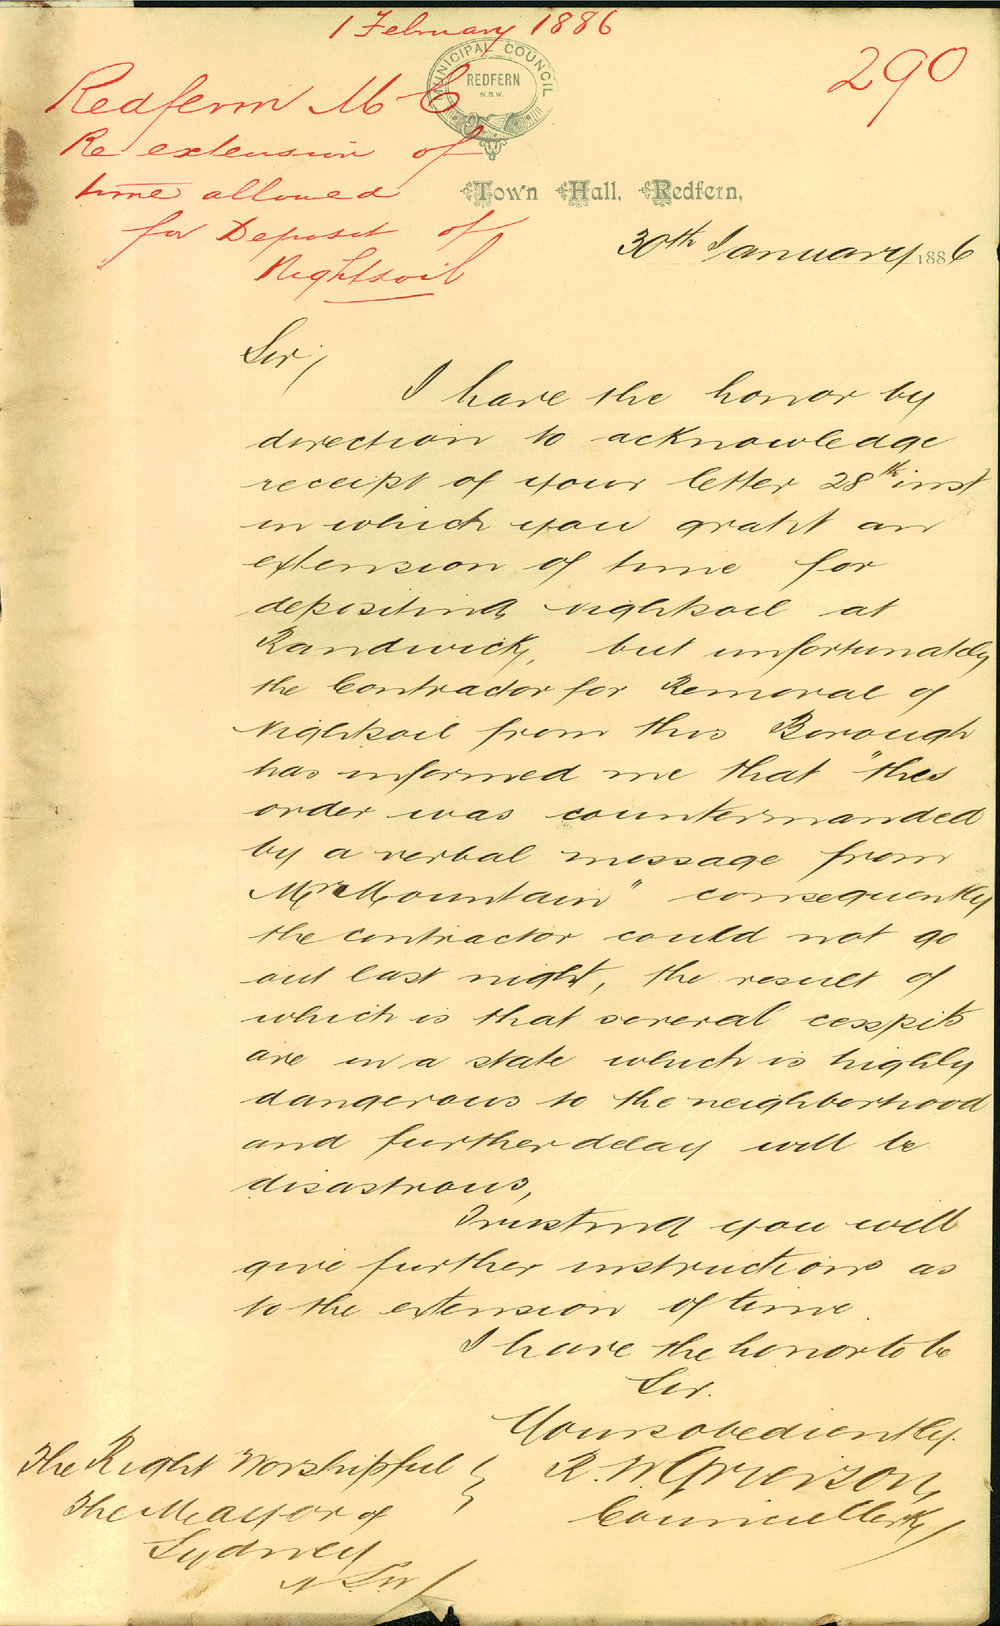 1 February 1886
290
Redfern M C
Re extension of
time allowed
for Deposit of
Nightsoil
MUNICIPAL COUNCIL
REDFERN
N.S.W.
Town Hall, Redfern,
30th January 1886
Sir,
I have the honor by
direction to acknowledge
receipt of your letter 28th inst
in which you grant an
extension of time for
depositing nightsoil at
Randwick, but unfortunately
the Contractor for Removal of
Nightsoil from this Borough
has informed me that "this
order was countermanded
by a verbal message from
Mr Mountain" consequently
the contractor could not go
out last night, the result of
which is that several cesspits
are in a state which is highly
dangerous to the neighborhood
and further delay will be
disastrous,
Trusting you will
give further instructions as
to the extension of time.
I have the honor to be
Sir.
Yours obediently.
R. W. Grierson,
Council Clerk
The Right Worshipful
The Mayor of
Sydney
N S W